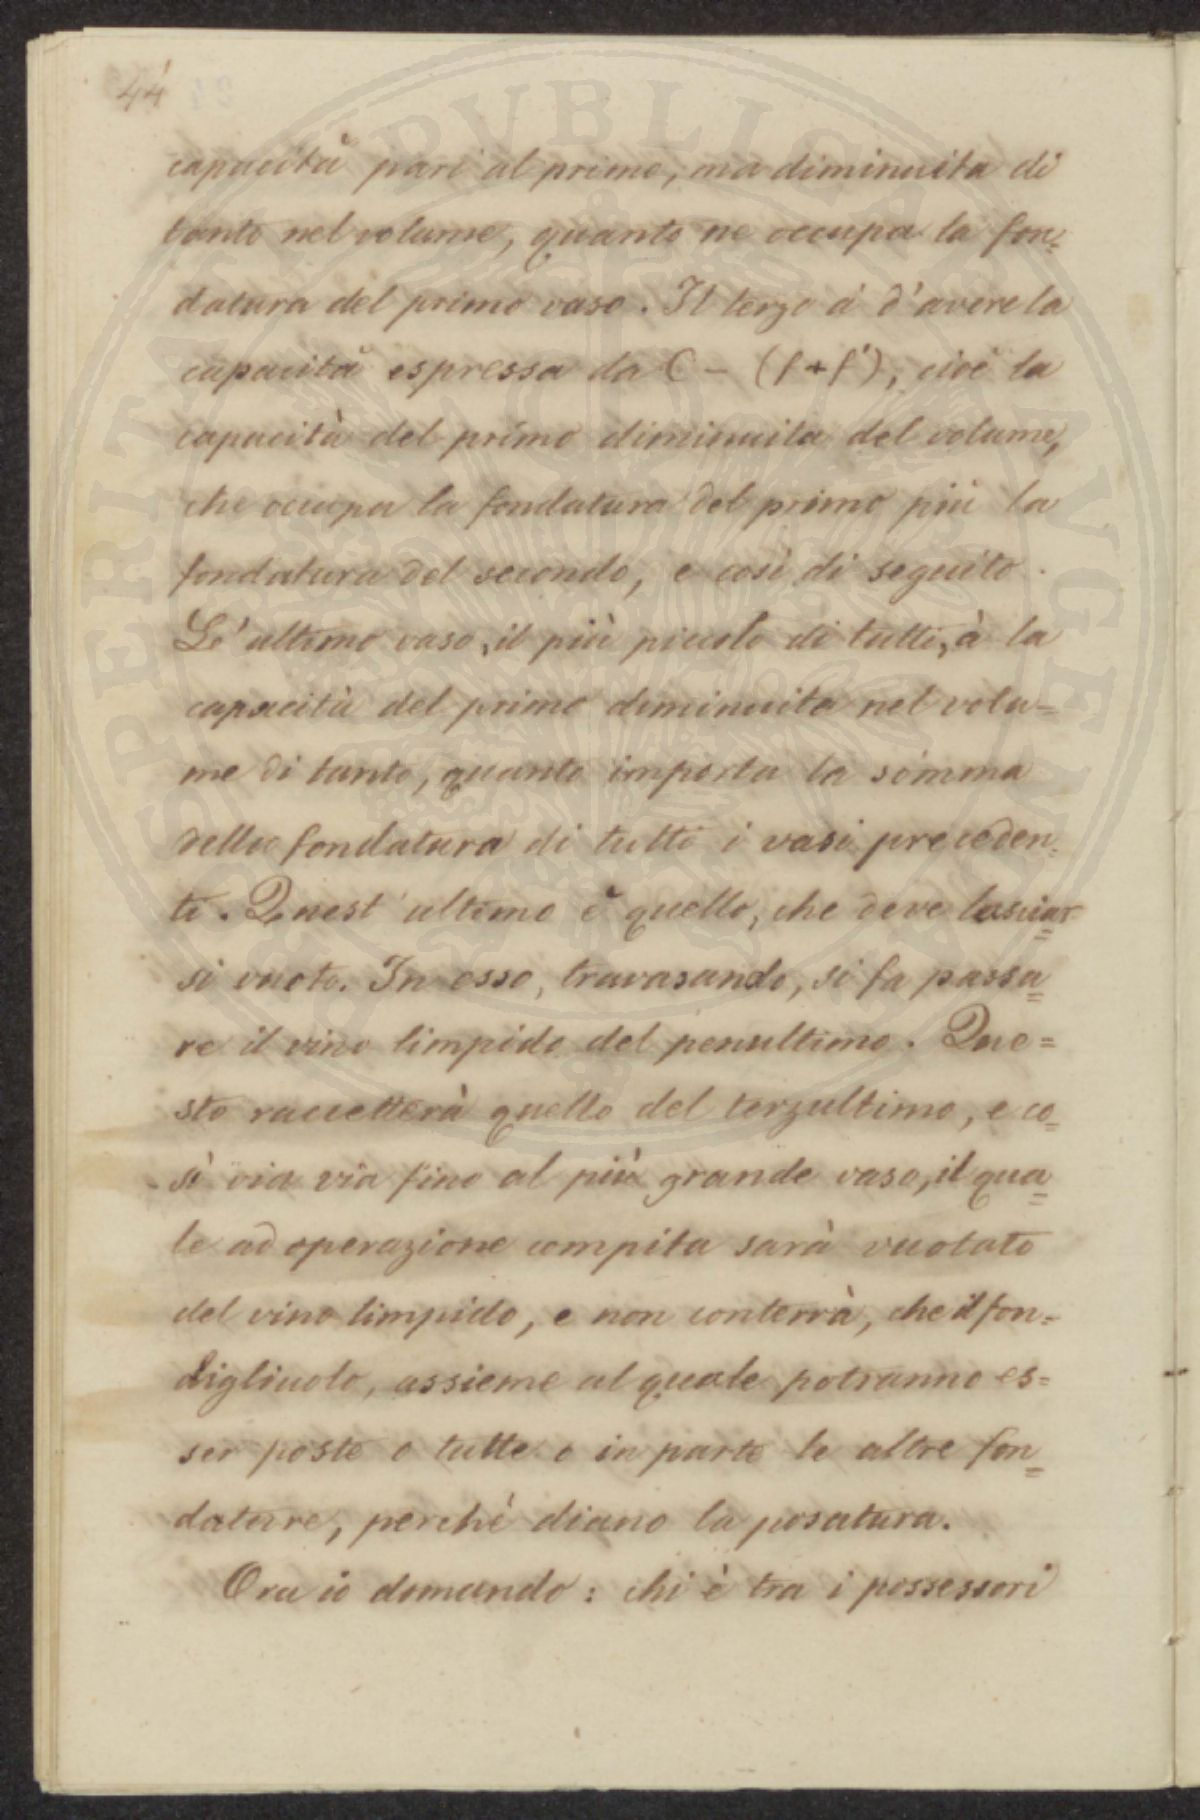 44
capacità pari al primo, ma diminuita di
tanto nel volume, quanto ne occupa la fon-
datura del primo vaso. Il terzo à d'avere la
capacità espressa da C - (f + f'), cioè la
capacità del primo diminuita del volume,
che occupa la fondatura del primo più la
fondatura del secondo, e così di seguito.
Lo' ultimo vaso, il più piccolo di tutti, à la
capacità del primo diminuita nel volu=
me di tanto, quanto importa la somma
delle fondatura di tutti i vasi preceden-
ti. Quest'ultimo è quello, che deve lasciar=
si vuoto. In esso, travasando, si fa passa=
re il vino limpido del penultimo. Que=
sto raccetterà quello del terzultimo, e co=
sì via via fino al più grande vaso, il qua=
le ad operazione compita sarà vuotato
del vino limpido, e non conterrà, che il fon=
digliuolo, assieme al quale potranno es=
ser poste o tutte o in parte le altre fon=
dature, perchè diano la posatura.
Ora io domando: chi è tra i possessori
PROSPERITATI PVBLICAE AVGENDAE